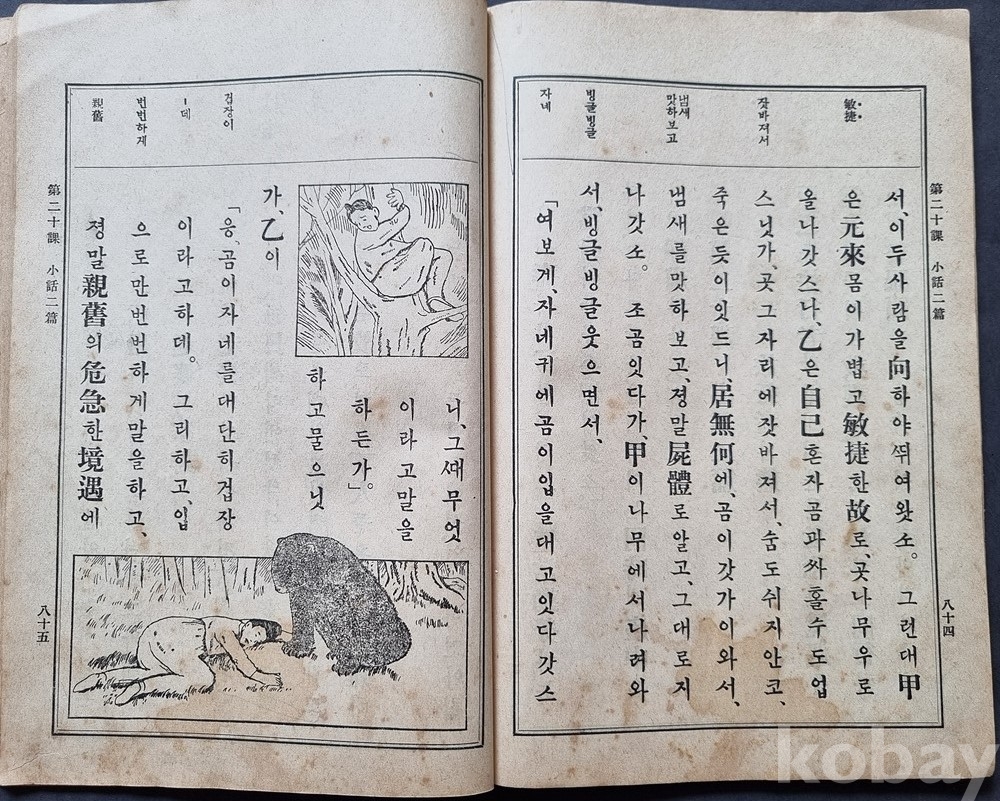 敏捷
잣바져서
냄새
맛하보고
빙글빙글
자네
第二十課 小話二篇
八十四
서、이두사람을向하야뛰여왓소。 그런대甲
은元來몸이가볍고敏捷한故로、곳나무우로
올나갓스나、乙은自己혼자곰과싸홀수도업
스닛가、곳그자리에잣바져서、숨도쉬지안코、
죽은듯이잇드니、居無何에、곰이갓가이와서、
냄새를맛하보고、졍말屍體로알고、그대로지
나갓소。 조곰잇다가、甲이나무에서나려와
서、빙글빙글웃으면서、
「여보게、자네귀에곰이입을대고잇다갓스
겁장이
ㅡ데
번번하게
親舊
第二十課 小話二篇
八十五
니、그ᄯᅢ무엇
이라고말을
하든가。」
하고물으닛
가、乙이
「응、곰이자네를대단히겁장
이라고하데。 그리하고、입
으로만번번하게말을하고、
졍말親舊의危急한境遇에
kobay